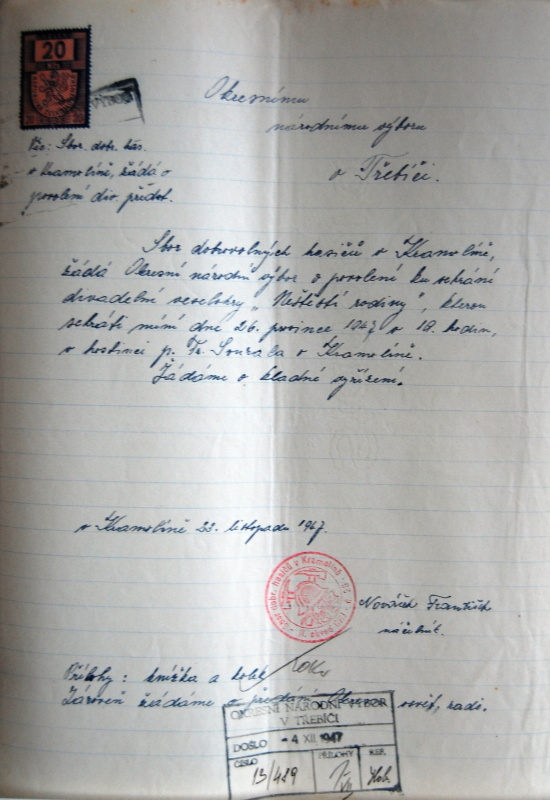 20
Okresnímu
národnímu výboru
v Třebíči.
Věc: Sbor. dobr. has.
v Kramolíně, žádá o
povolení div. předst.
Sbor dobrovolných hasičů v Kramolíně,
žádá Okresní národní výbor o povolení ku sehrání
divadelní veselohry „Neštěstí rodiny“, kterou
sehráti míní dne 26. prosince 1947 v 18. hodin,
v hostinci p. Fr. v Kramolíně.
Žádáme o kladné vyřízení.
v Kramolíně 22. listopadu 1947.
Sbor dobr. hasičů v Kramolíně
Nováček František
náčelník.
Přílohy: knížka a kolek
Zároveň žádáme o předání Okres. osvět. radě.
OKRESNÍ NÁRODNÍ VÝBOR
V TŘEBÍČI
DOŠLO -4 XII. 1947
ČÍSLO PŘÍLOHY REF.
13/429